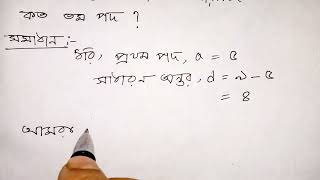 কত তম পদ ?
সমাধান :-
ধরি, প্রথম পদ, a = ৫
সাধারন অন্তর, d = ৯ - ৫
= ৪
আমরা